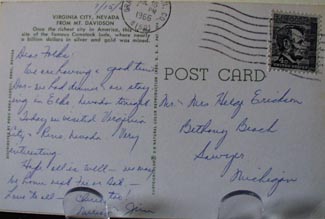 7/15/
VIRGINIA CITY, NEVADA
FROM MT. DAVIDSON
Once the richest city in America, this is the
site of the famous Comstock Lode, where nearly
a billion dollars in silver and gold was mined.
Dear Folks,
We are having a good time
had dinner are stay-
ing in Elko, Nevada tonight.
Today we visited Virginia
City & Reno, Nevada. Very
interesting.
Hope all is well — we may
be home next Fri or Sat —
Love to all —
Jim
1966
POST CARD
Mr & Mrs Helge Erickson
Bethany Beach
Sawyer
Michigan